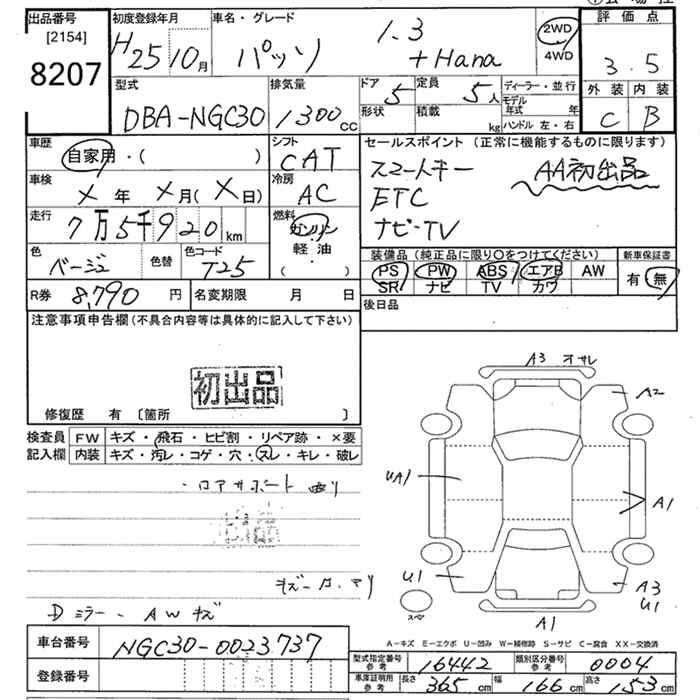 出品番号 [2154] 8207
初度登録年月 H25 10月
車名・グレード パッソ 1.3 +Hana
2WD 4WD
評価点 3.5
外装 内装
C B
型式 DBA-NGC30
排気量 1300cc
ドア 5
形状
定員 5人
積載 kg
ディーラー・並行
モデル年式 年
ハンドル 左・右
車歴 自家用・( )
シフト CAT
セールスポイント (正常に機能するものに限ります)
スマートキー AA初出品
ETC
ナビ・TV
車検 X年 X月(X日)
冷房 AC
走行 7万5千920km
燃料 ガソリン
軽油
( )
色 ベージュ 色替
色コード T25
装備品 (純正品に限り○をつけてください)
PS PW ABS エアB AW
SR ナビ TV カワ
新車保証書
有 無
R券 8,790円
名変期限 月 日
後日品
注意事項申告欄 (不具合内容等は具体的に記入して下さい)
初出品
修復歴 有 〔箇所 〕
検査員記入欄
FW キズ・飛石・ヒビ割・リペア跡・×要
内装 キズ・汚レ・コゲ・穴・スレ・キレ・破レ
・ロアサポート
Dミラー、AWキズ
A3
A2
UA1
A1
U1
A3
U1
スペア
A1
A-キズ E-エクボ U-凹み W-補修跡 S-サビ C-腐食 XX-交換済
車台番号 NGC30-0023737
登録番号
型式指定番号 参考 16442
類別区分番号 参考 0004
車庫証明用 参考 長さ 365cm 幅 166cm 高さ 153cm